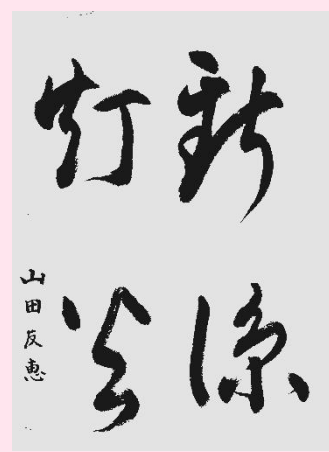 新涼
灯火
山田友恵